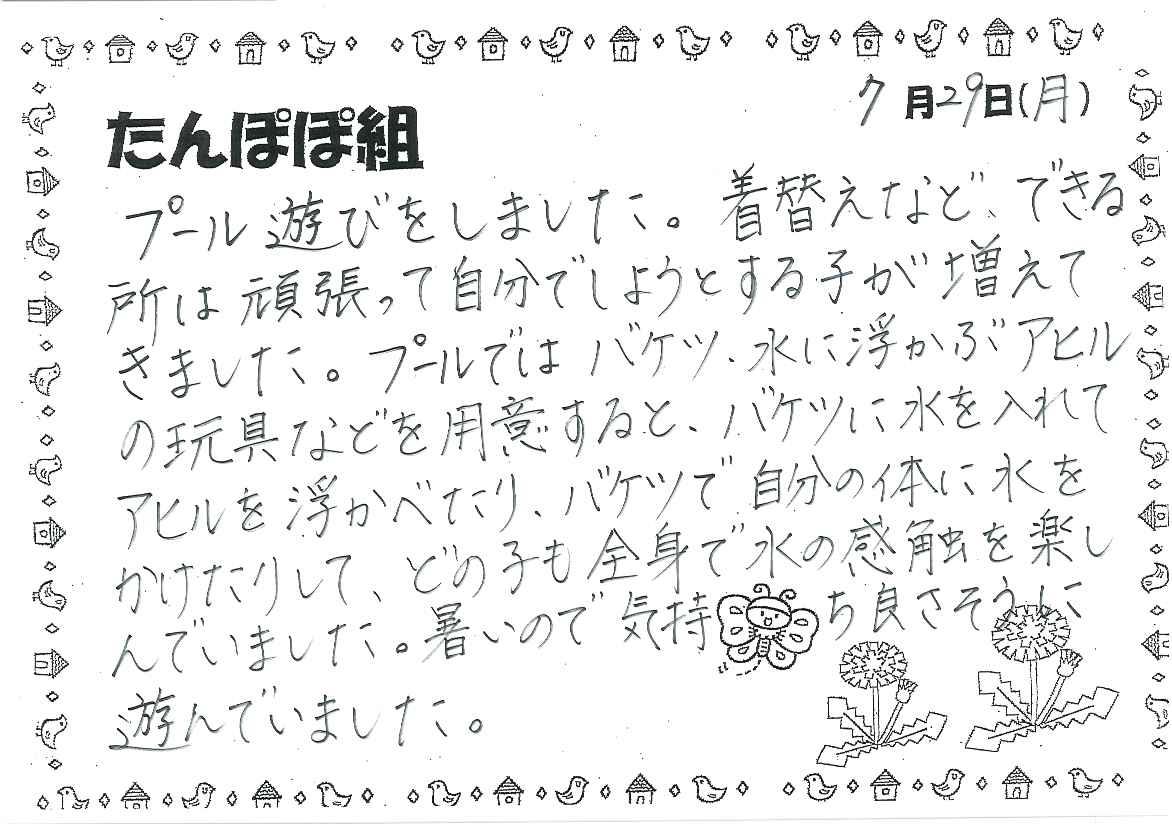 7月29日(月)
たんぽぽ組
プール遊びをしました。着替えなど、できる
所は頑張って自分でしようとする子が増えて
きました。プールではバケツ、水に浮かぶアヒル
の玩具などを用意すると、バケツに水を入れて
アヒルを浮かべたり、バケツで自分の体に水を
かけたりして、どの子も全身で水の感触を楽し
んでいました。暑いので気持ち良さそうに
遊んでいました。